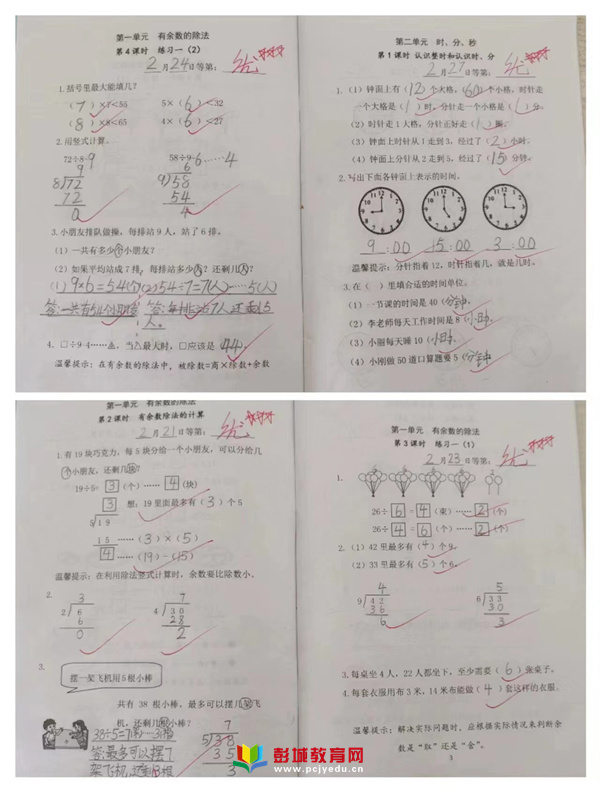 第一单元 有余数的除法
第4课时 练习一（2）
2月24日等第：优
1.括号里最大能填几？
（7）×7<55 5×（6）<32
（8）×8<65 4×（6）<27
2.用竖式计算。
72÷8=9 58÷9=6……4
9
8 72
72
0
6
9 58
54
4
3.小朋友排队做操，每排站9人，站了6排。
（1）一共有多少个小朋友？
（2）如果平均站成7排，每排站多少人？还剩几人？
(1) 9×6=54(个) (2) 54÷7=7(人)……5(人)
4.□÷9=4……△，当△最大时，□应该是（44）。
温馨提示：在有余数的除法中，被除数=商×除数+余数
第二单元 时、分、秒
第1课时 认识整时和认识时、分
2月27日等第：优
1.（1）钟面上有（12）个大格，（60）个小格，时针走
一个大格是（1）时，分针走一个小格是（1）分。
（2）时针走1大格，分针正好走（1）圈。
（3）钟面上时针从1走到3，经过了（2）小时。
（4）钟面上分针从2走到5，经过了（15）分钟。
2.写出下面各钟面上表示的时间。
9:00 5:00 3:00
温馨提示：分针指着12，时针指着几，就是几时。
3.在（ ）里填合适的时间单位。
（1）一节课的时间是40（分钟）
（2）李老师每天工作时间是8（小时）
（3）小丽每天睡10（小时）
（4）小刚做50道口算题要5（分钟）
第一单元 有余数的除法
第2课时 有余数除法的计算
2月21日等第：优
1.有19块巧克力，每5块分给一个小朋友，可以分给几
个小朋友，还剩几块？
19÷5=3（个）……4（块）
3 想：19里面最多有（3）个5
5 19
15 ……（3）×（5）
4 ……（19）-（15）
温馨提示：在利用除法竖式计算时，余数要比除数小。
2.
3
2 6
6
0
7
4 30
28
2
3.
摆一架飞机用5根小棒
共有 38 根小棒，最多可以摆几架飞
机，还剩几根小棒？
38÷5=7(架)……3(根)
答:最多可以摆7
架飞机,还剩3根
7
5 38
35
3
第一单元 有余数的除法
第3课时 练习一（1）
2月23日等第：优
1.
26÷6=4（束）……2（个）
26÷4=6（个）……2（个）
2.（1）42里最多有（4）个9。
（2）33里最多有（5）个6。
4
9 42
36
6
5
6 33
30
3
3.每桌坐4人，22人都坐下，至少需要（6）张桌子。
4.每套衣服用布3米，14米布能做（4）套这样的衣服。
温馨提示：解决实际问题时，应根据实际情况来判断余
数是“取”还是“舍”。
3
彭城教育网
www.pcjyedu.cn